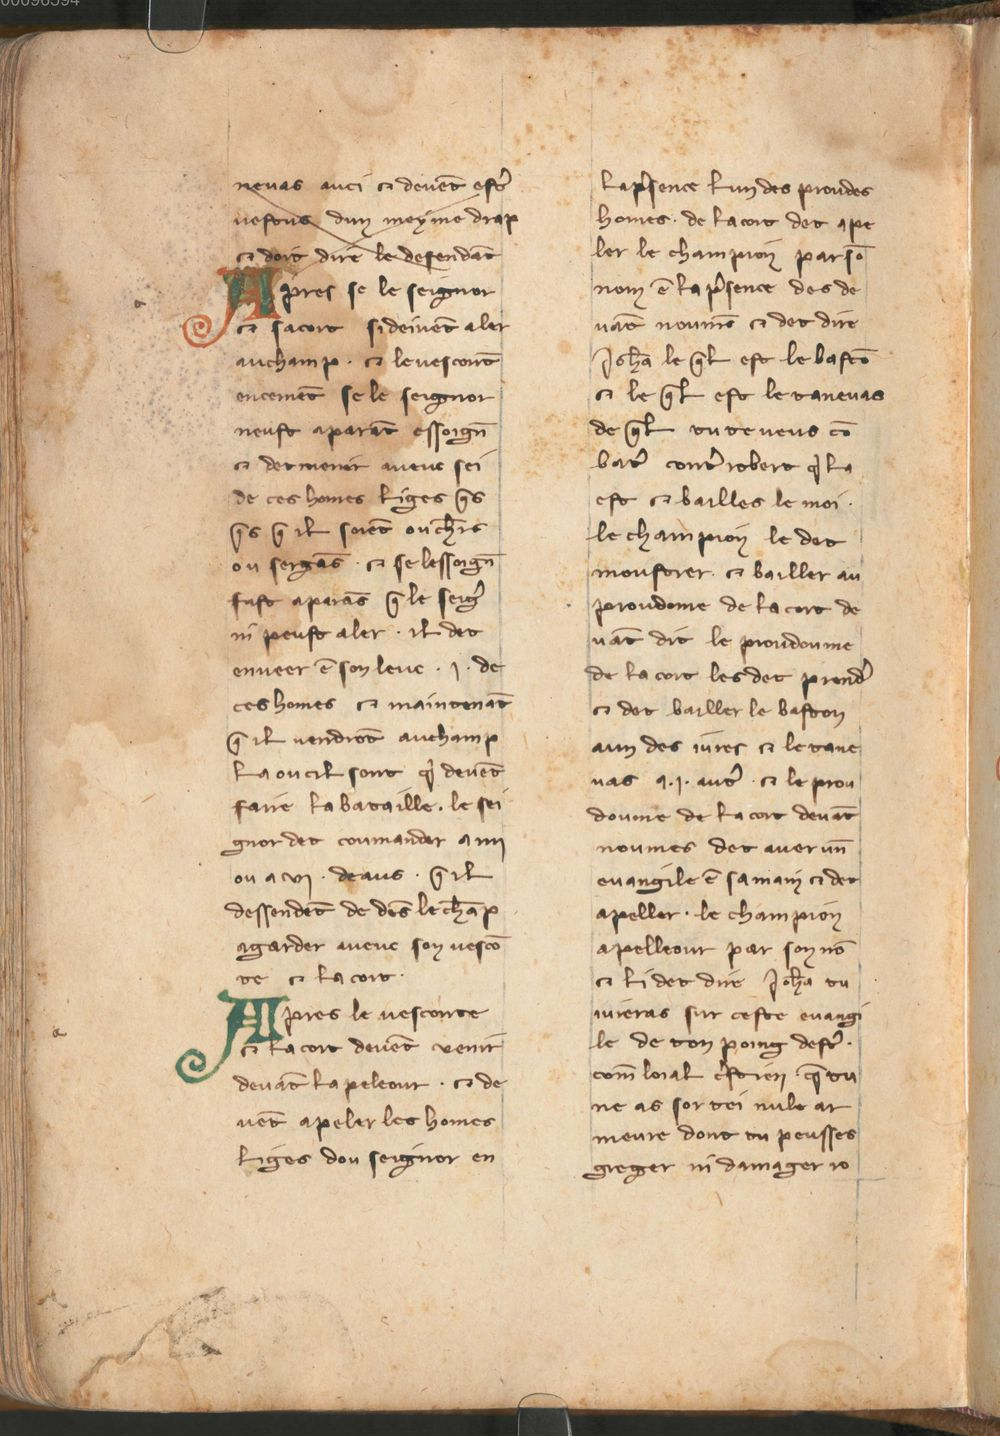 00096594
nevas auci et devent estr̄
vestus dun meyme drap
et doit dire le defendāt
Apres se le seignor
et sacort si deivent aler
auchamp · et levescont
encement se le seignor
neust aparāt essoign̄
et det menir aveuc sei
de ces homes liges q̄ls
q̄ls q̄ il soiēt ou ch̄rs
ou sergās · et se lessoign̄
fust aparās q̄ le seigr̄
ni peust aler · il det
enveer ē son leuc · j · de
ces homes et maintenāt
q̄ il vendrōt auchamp
la ou cil sont q̄ devēt
faire la bataille · le sei
gnor det coumander a iiij
ou a vj · deaus · q̄ il
dessendēt de dēs le chāp
agarder aveuc son vescō
te et la cort ·
Apres le vesconte
et la cort devēt venir
devāt lapeleour · et de
vēt apeler les homes
liges dou seignor en
lap̄sence lun des proudes
homes · de la cort det ape
ler le champion par sō
nom ē lap̄sence des de
vāt noumēs et det dire
Johā le q̄l est le bastō
et le q̄l est le tanevas
de q̄l tu te veus cō
batr̄ contr̄ robert q̄ la
est et bailles le moi ·
le champion le det
moustrer · et bailler au
proudome de la cort de
vāt dit le proudoume
de la cort les det prendr̄
et det bailler le baston
aun des jures et le tane
vas a · j · autr̄ · et le prou
doume de la cort devāt
noumes det aver un̄
evangile ē sa main et det
apeller · le champion
apelleour par son nō
et li det dire Johā tu
jureras sur ceste evangi
le de ton poing destr̄ ·
com̄ loial c̄stien · q̄ tu
ne as sor tei nule ar
meure dont tu peusses
greger ni damager ro